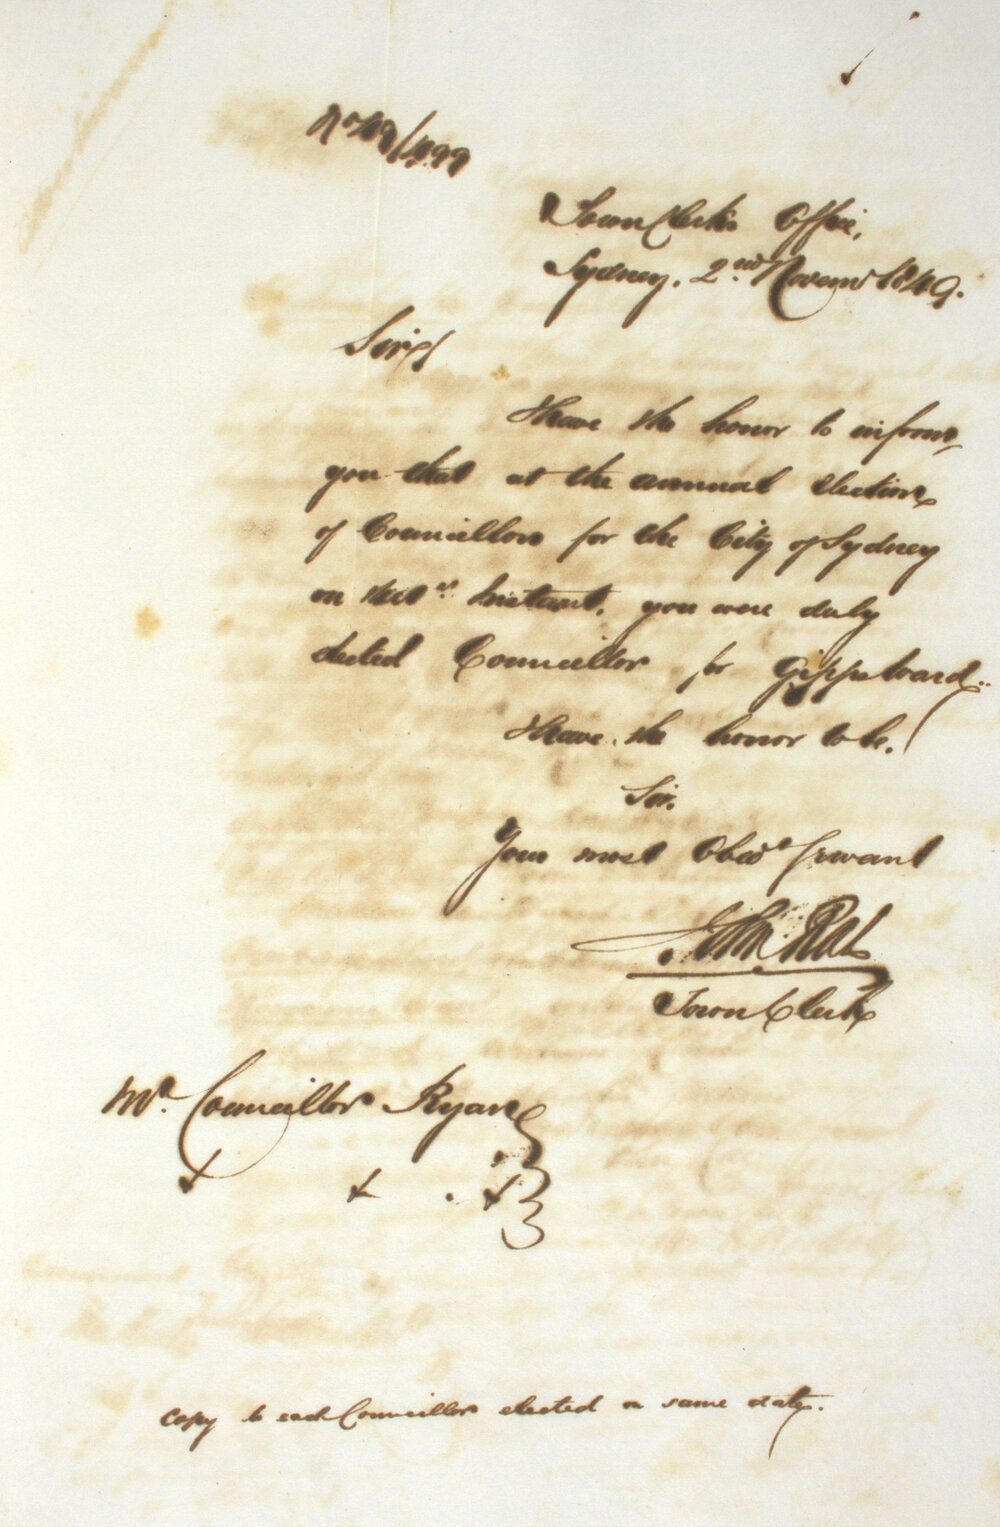 Town Clerk's Office,
Sydney, 2nd. Novemr 1849.
Sir,
I have the honor to inform,
you that at the annual election
of Councillors for the City of Sydney
on the 1st. Instant, you were duly
elected Councillor for Gipps Ward.
I have the honor to be,
Sir,
Your most Obedt Servant
John Rae
Town Clerk
Mr. Councillor Ryan
copy to each Councillor elected on same date.